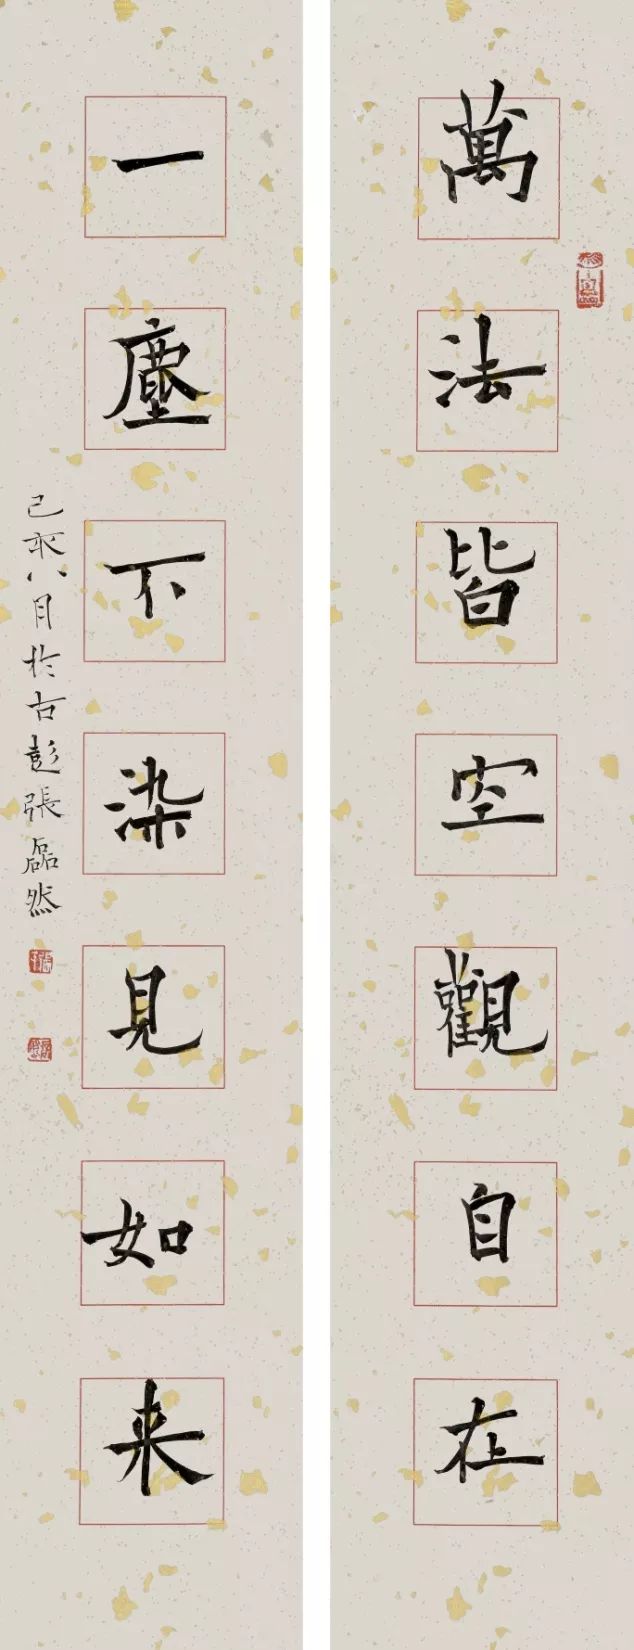 萬法皆空觀自在
一塵不染見如来
己亥八月於古彭張磊然